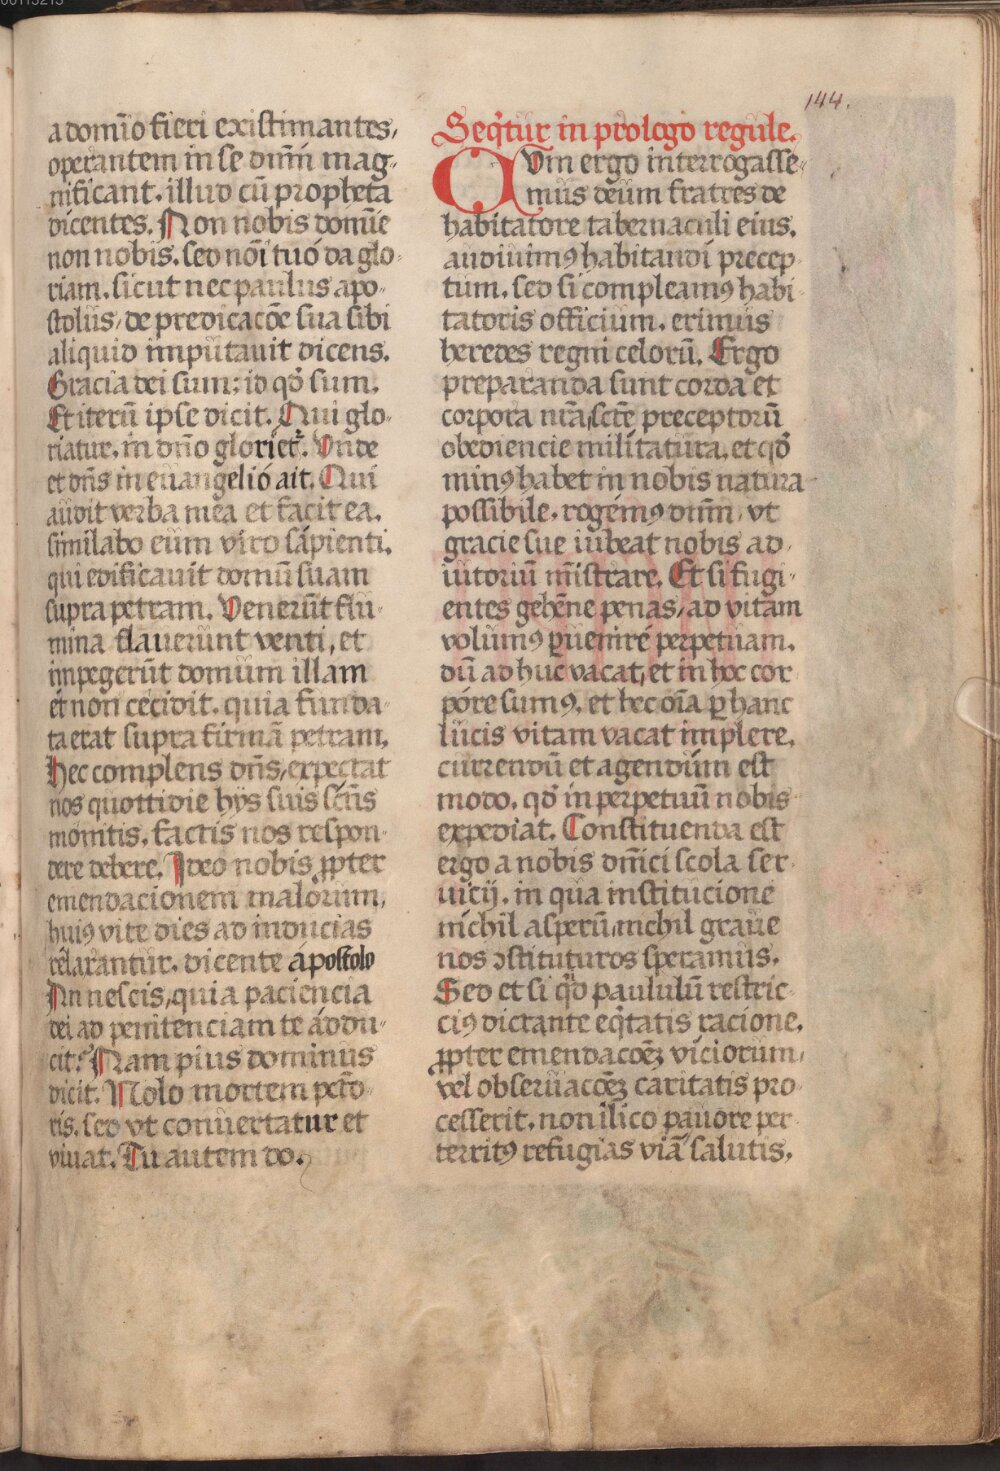 00113213
144.
a domīo fieri existimantes,
operantem in se dnm̄ mag-
nificant. illud cū propheta
dicentes. Non nobis domīe
non nobis. sed nōi tuo da glo-
riam. sicut nec paulus apo-
stolus, de predicacōe sua sibi
aliquid imputauit dicens.
Gracia dei sum; id qd̄ sum.
Et iterū ipse dicit. Qui glo-
riatur. in dn̄o glorietr̄. Vnde
et dn̄s in euangelio ait. Qui
audit verba mea et facit ea.
similabo eum viro sapienti.
qui edificauit domū suam
supra petram. Venerūt flu-
mina flauerunt venti, et
impegerūt domum illam
et non cecidit. quia funda-
ta erat supra firmā petram.
Hec complens dn̄s, expectat
nos quottidie hijs suis sc̄tis
monitis. factis nos respon-
dere debere. Ideo nobis ꝓpter
emendacionem malorum,
huiꝯ vite dies ad inducias
relaxantur. dicente apostolo
An nescis, quia paciencia
dei ad penitenciam te addu-
cit? Nam pius dominus
dicit. Nolo mortem pctō-
ris. sed vt conuertatur et
viuat. Tu autem do.
Seq̄tur in prologo regule.
QVm ergo interrogasse-
mus deum fratres de
habitatore tabernaculi eius.
audiuimꝯ habitandi precep-
tum. sed si compleamꝯ habi-
tatoris officium. erimus
heredes regni celorū. Ergo
preparanda sunt corda et
corpora nr̄a, sctē preceptorū
obediencie militatura. et qd̄
minꝯ habet in nobis natura
possibile. rogemꝯ dnm̄, vt
gracie sue iubeat nobis ad-
iutoriū mīstrare. Et si fugi-
entes gehēne penas, ad vitam
volumꝯ ꝑuenire perpetuam.
dū ad huc vacat, et in hoc cor-
pore sumꝯ. et hec oīa ꝑ hanc
lucis vitam vacat implere.
currendū et agendum est
modo. qd̄ in perpetuū nobis
expediat. Constituenda est
ergo a nobis dn̄ici scola ser-
uicij. in qua institucione
nichil asperū, nichil graue
nos ↄstituturos speramus.
Sed et si q̄d paululū restric-
ciꝯ dictante eq̄tatis racione.
ꝓpter emendacōeꝫ viciorum,
vel obseruacōeꝫ caritatis pro-
cesserit. non ilico pauore per-
territꝯ refugias viā salutis.